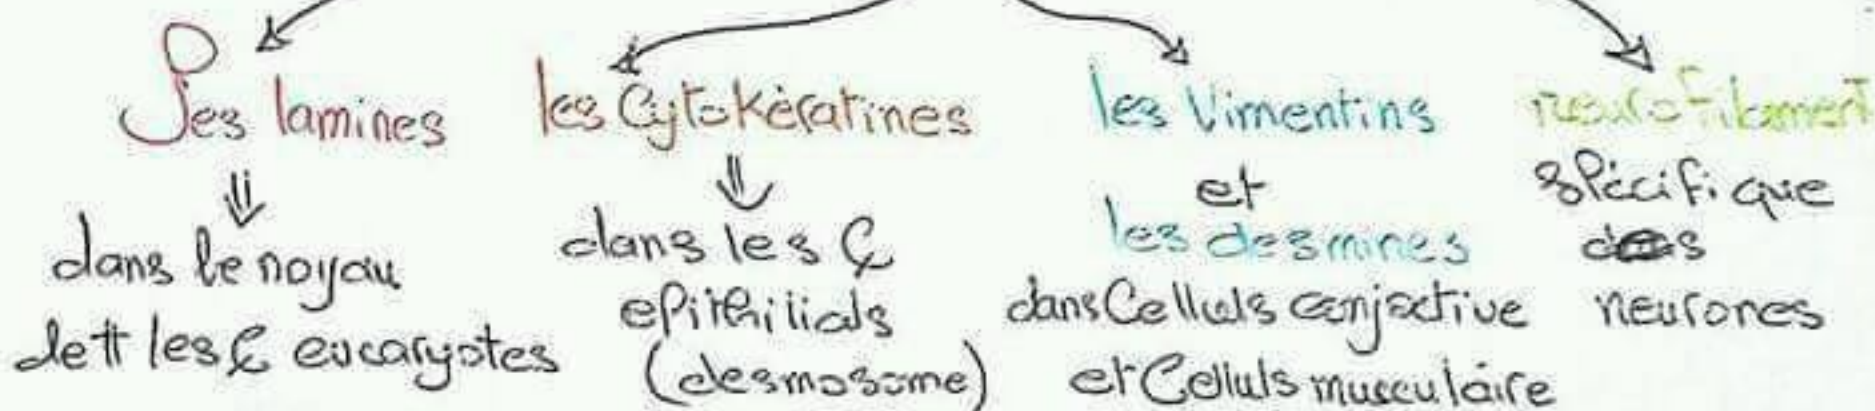 les lamines
⇓
dans le noyau
de tt les C eucaryotes
les Cytokératines
⇓
dans les C
epithilials
(desmosome)
les Vimentins
et
les desmines
dans Celluls conjective
et Celluls musculaire
neurofilament
spécifique
des
neurones